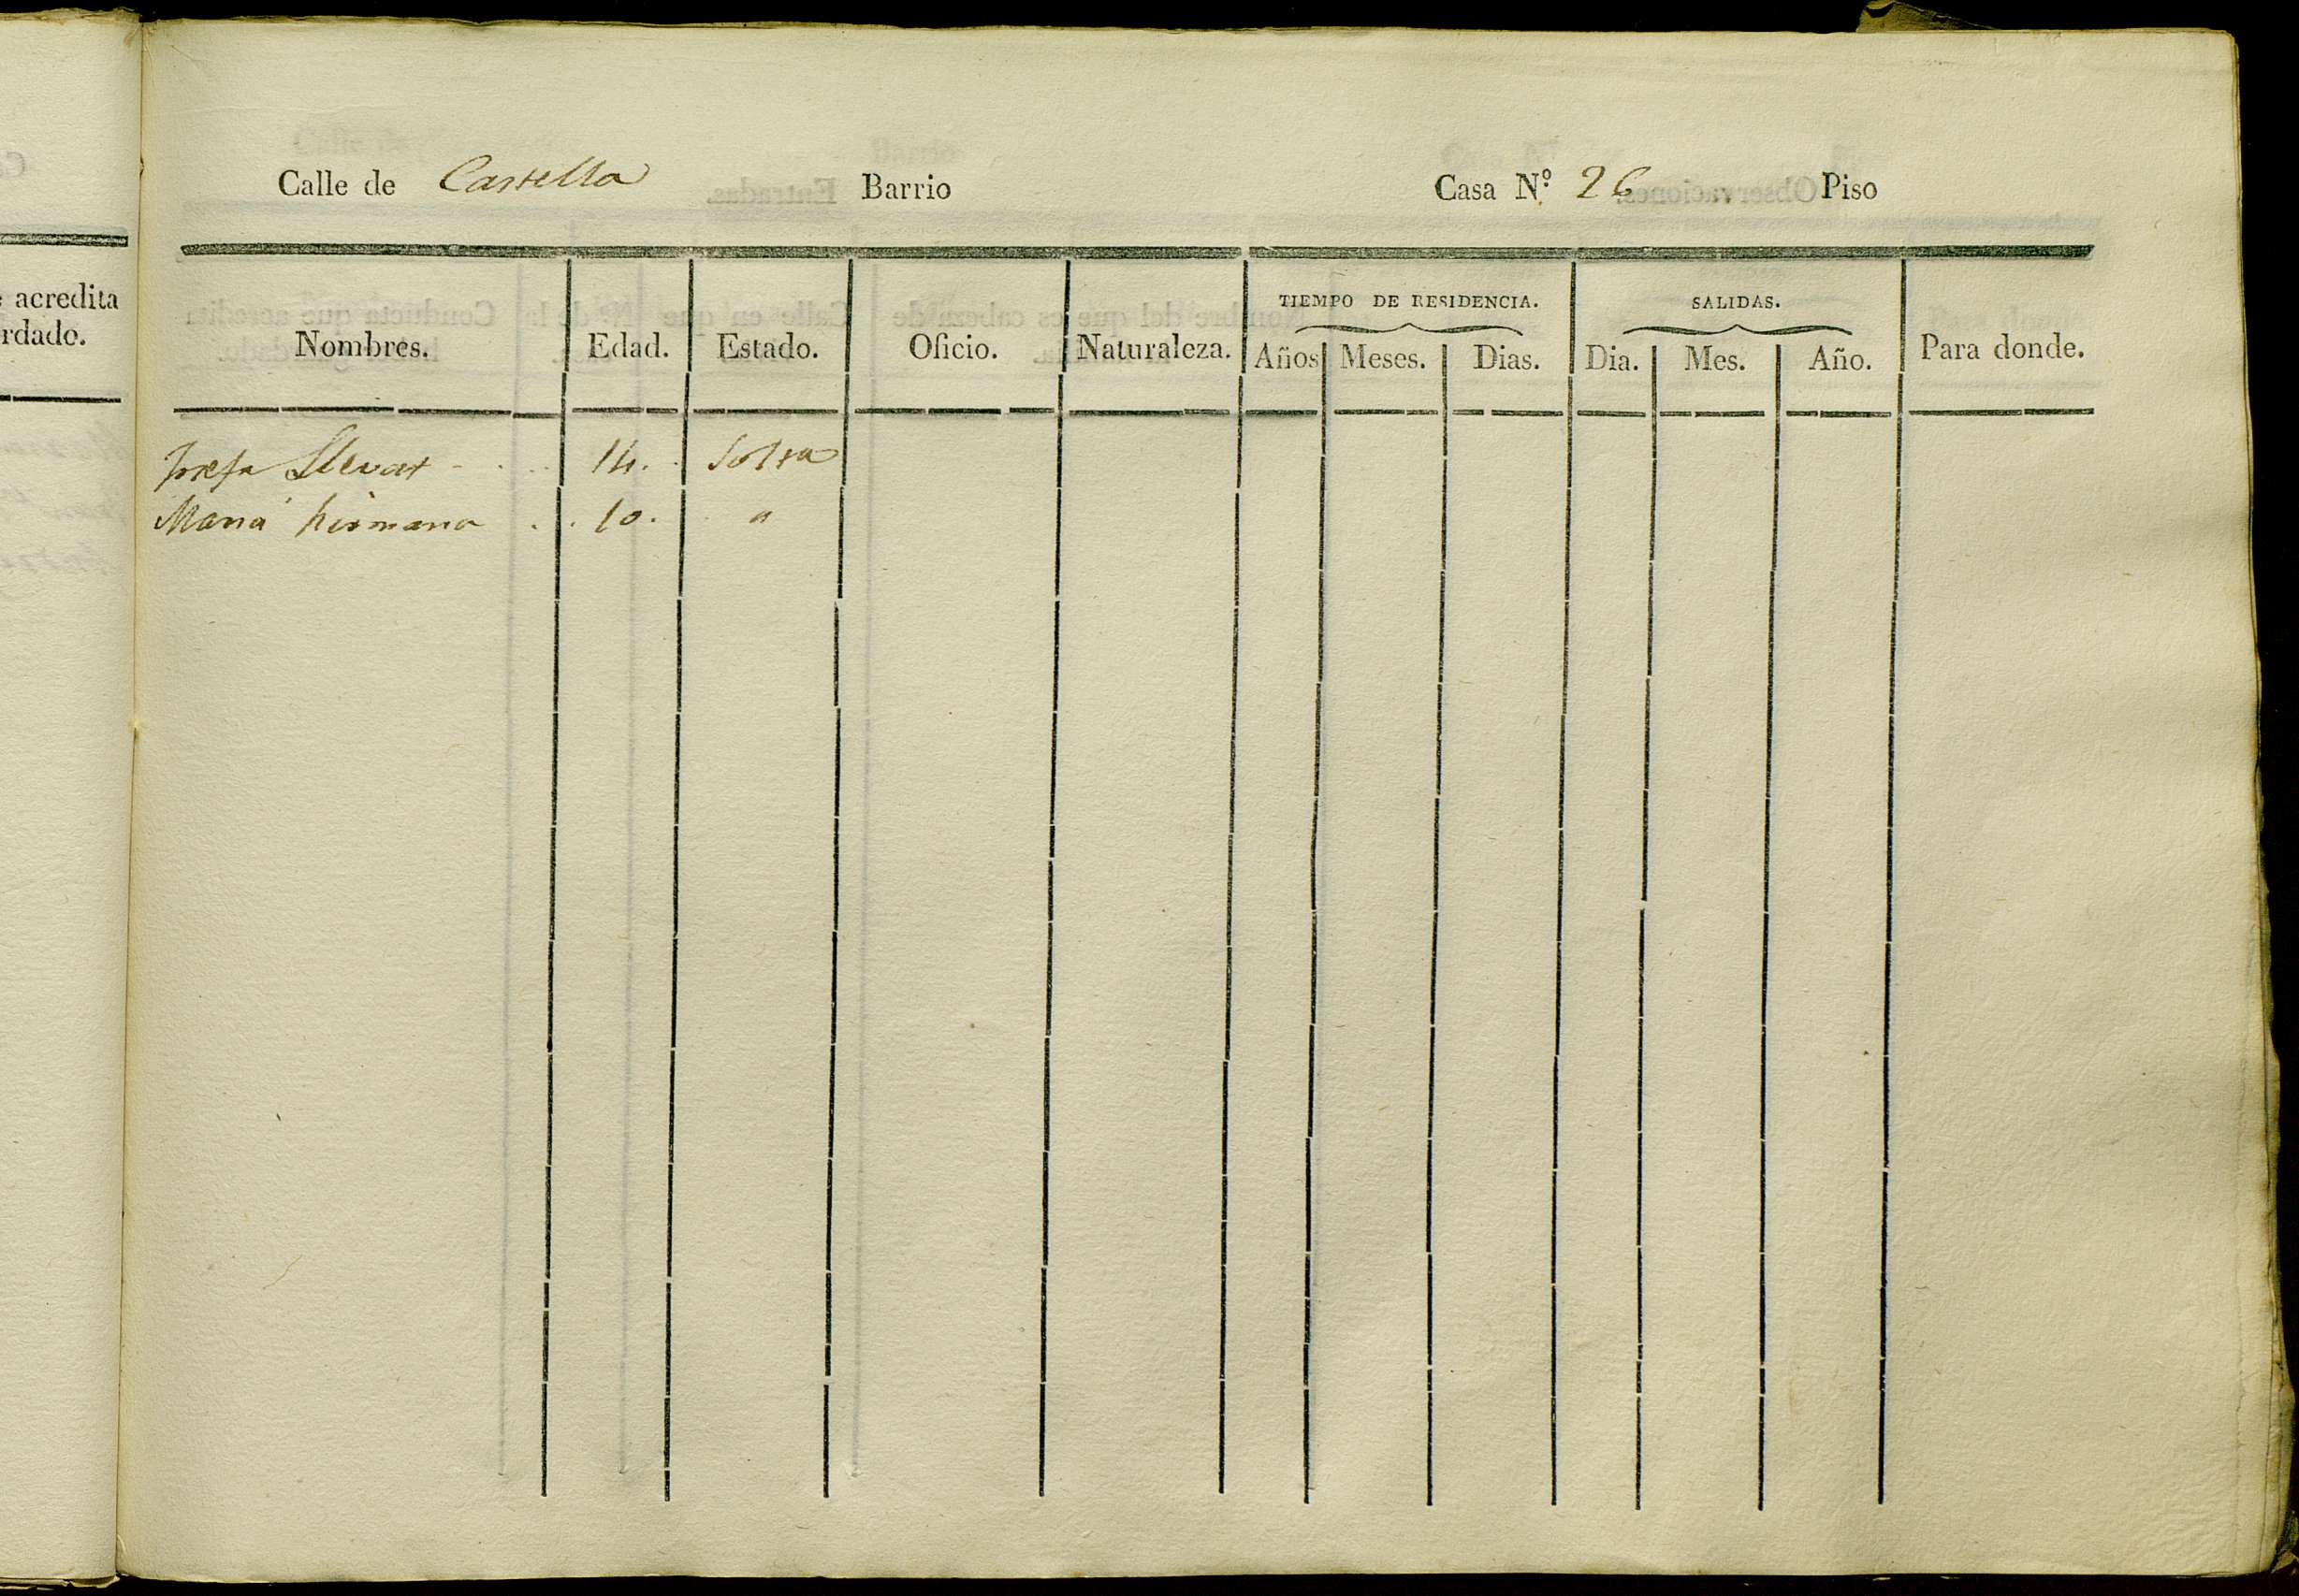 Calle de Castella Barrio Casa N.º 26 Piso
acredita
rdado.
TIEMPO DE RESIDENCIA. SALIDAS.
Nombres. Edad. Estado. Oficio. Naturaleza. Años Meses. Dias. Dia. Mes. Año. Para donde.
Josefa Llevat 14. Soltra
Maria hermana 10. "